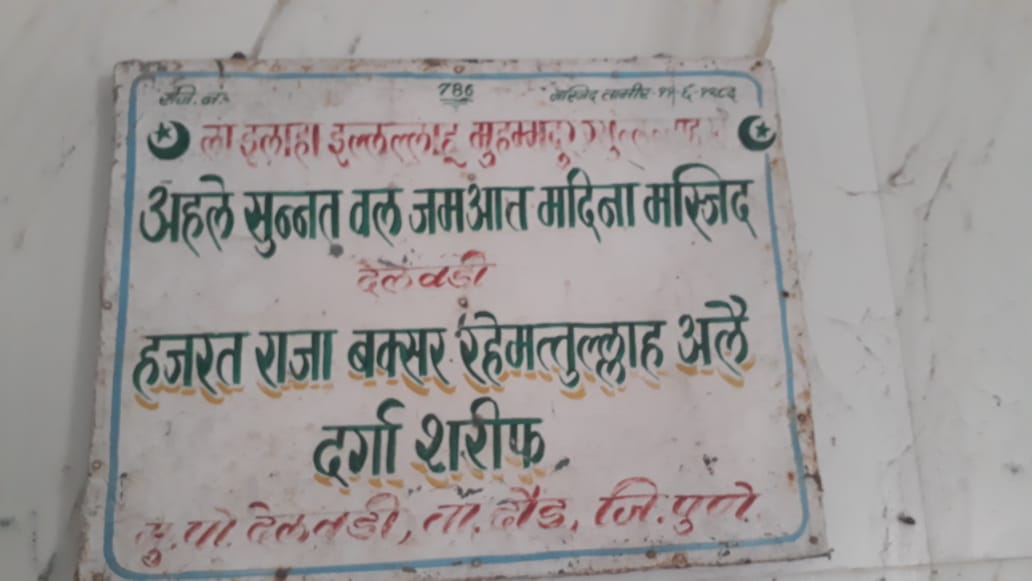 रजि. नं. 786 मस्जिद तामीर
ला इलाहा इल्लल्लाहू मुहम्मदुर
अहले सुन्नत वल जमआत मदिना मस्जिद
देलवडी
हजरत राजा बक्सर रहेमत्तुल्लाह अलै
दर्गा शरीफ
मु. पो. देलवडी, ता. दौंड, जि. पुणे.